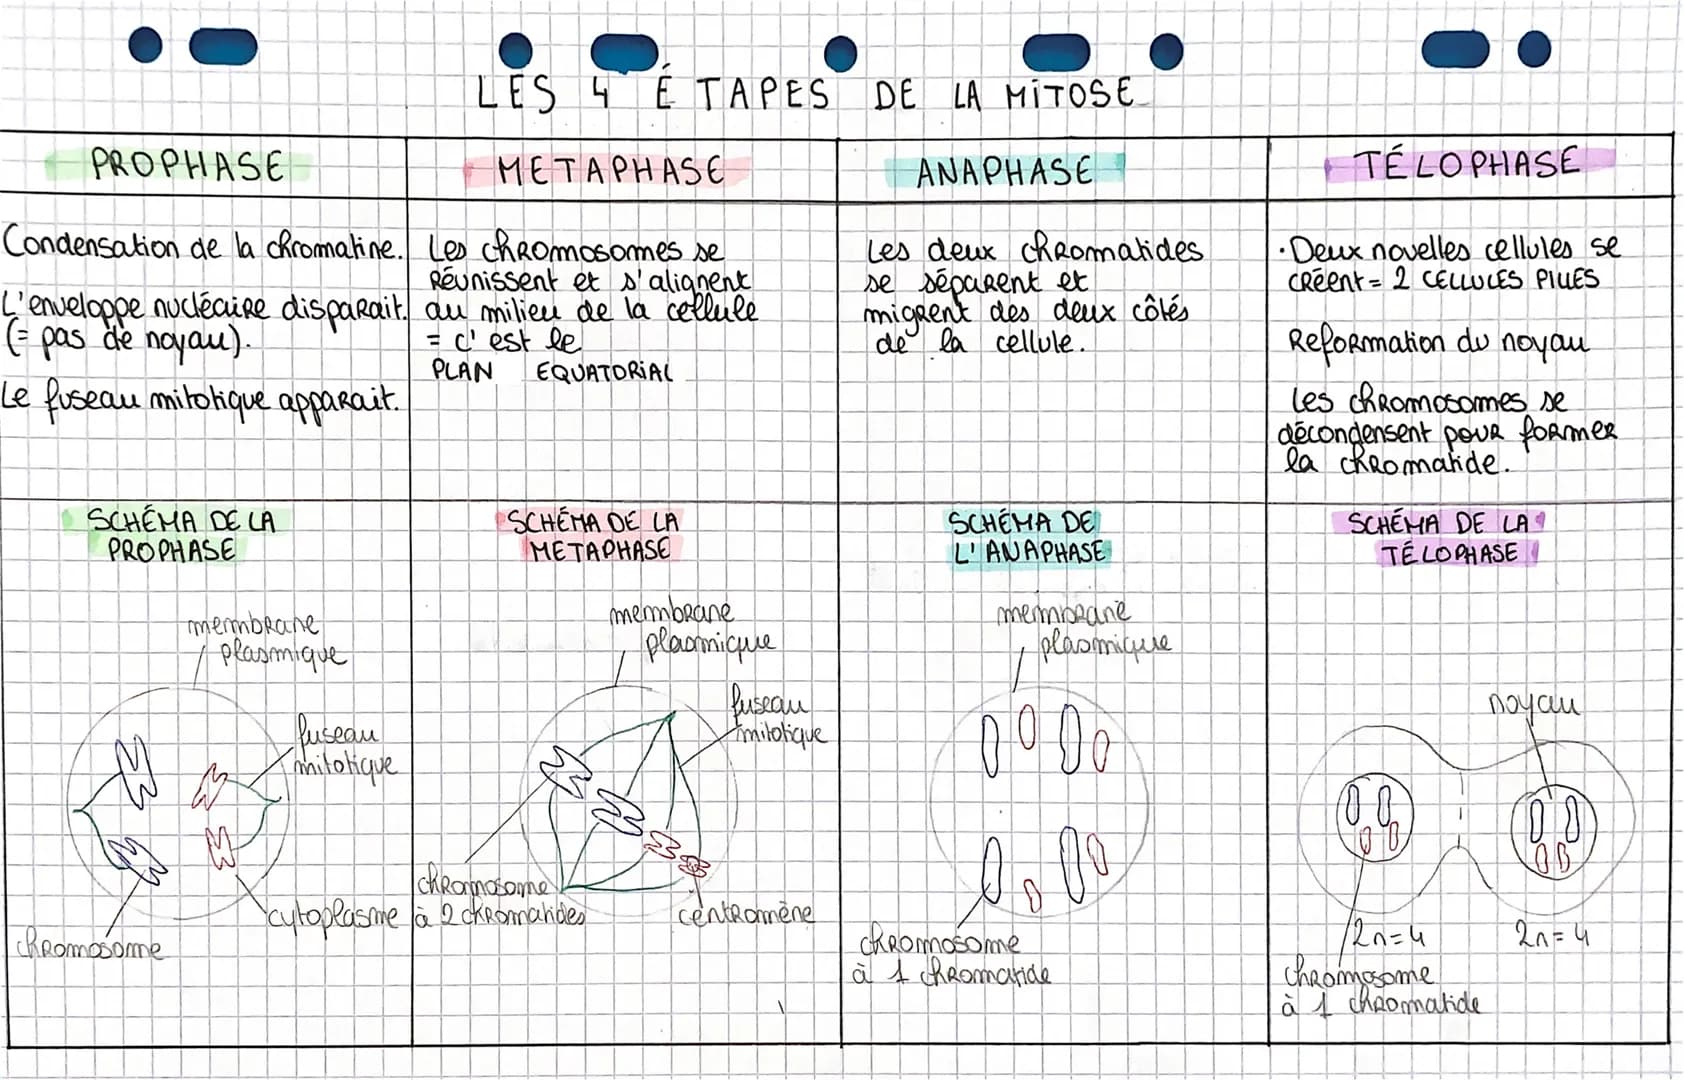 LES 4 ÉTAPES DE LA MITOSE
PROPHASE
METAPHASE
ANAPHASE
TÉLOPHASE
Condensation de la chromatine.
L'enveloppe nucléaire disparait.
(= pas de noyau).
Le fuseau mitotique apparait.
Les chromosomes se
réunissent et s'alignent
au milieu de la cellule
= c'est le
PLAN EQUATORIAL
Les deux chromatides
se séparent et
migrent des deux côtés
de la cellule.
·Deux novelles cellules se
créent = 2 CELLULES FILLES
Reformation du noyau
Les chromosomes se
décondensent pour former
la chromatide.
SCHÉMA DE LA
PROPHASE
SCHÉMA DE LA
METAPHASE
SCHÉMA DE
L'ANAPHASE
SCHÉMA DE LA
TÉLOPHASE
membrane
plasmique
fuseau
mitotique
cytoplasme
chromosome
membrane
plasmique
fuseau
mitotique
chromosome
à 2 chromatides
centromène
membrane
plasmique
chromosome
à 1 chromatide
noyau
2n=4
2n=4
chromosome
à 1 chromatide